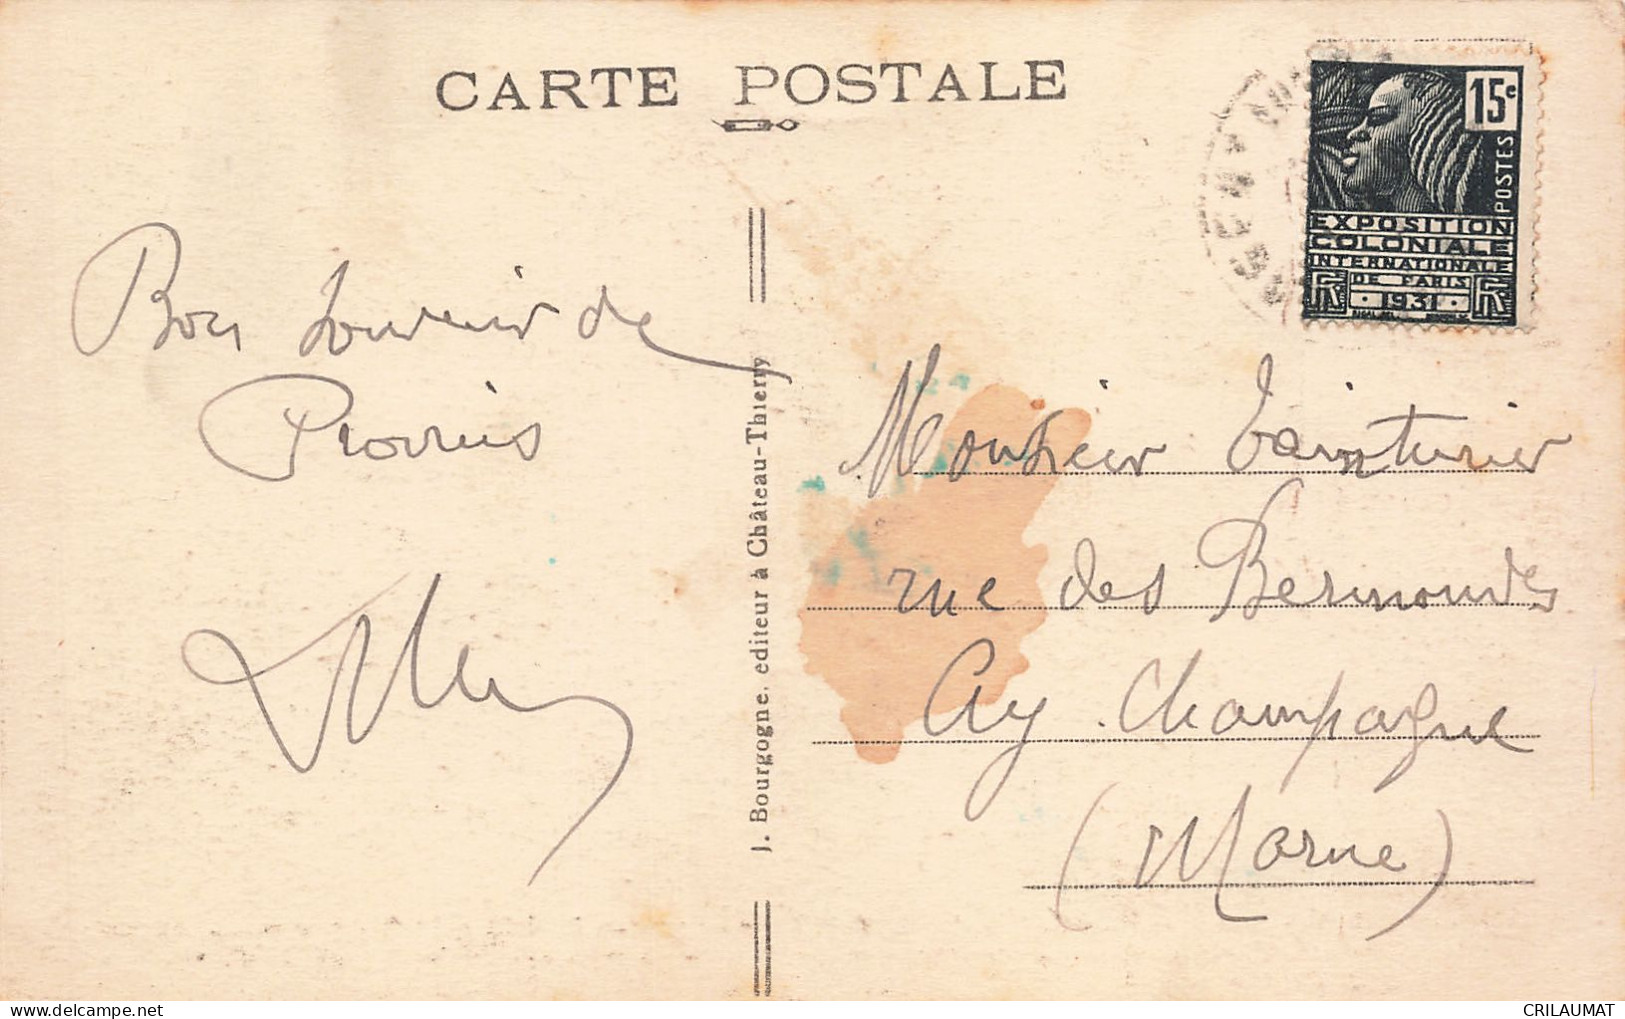 CARTE POSTALE
15c
POSTES
EXPOSITION
COLONIALE
INTERNATIONALE
DE PARIS
1931
Bon souvenir de
Provins
J. Bourgogne, editeur à Château-Thierry
Monsieur Tainturier
rue des Bermondes
Ay Champagne
(Marne)
CRILAUMAT